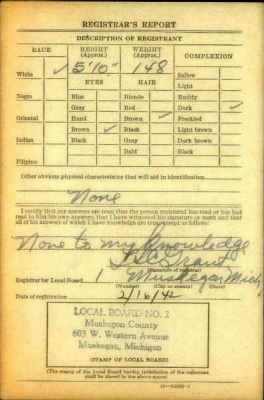 REGISTRAR'S REPORT
DESCRIPTION OF REGISTRANT
RACE HEIGHT (Approx.) WEIGHT (Approx.) COMPLEXION
White ✓ 5'10" 148 Sallow
EYES HAIR Light
Negro Blue Blonde Ruddy
Gray Red Dark ✓
Oriental Hazel Brown ✓ Freckled
Brown ✓ Black Light brown
Indian Black Gray Dark brown
Bald Black
Filipino
Other obvious physical characteristics that will aid in identification
None
I certify that my answers are true; that the person registered has read or has had
read to him his own answers; that I have witnessed his signature or mark and that
all of his answers of which I have knowledge are true, except as follows:
None to my Knowledge
Grant
(Signature of registrar)
Registrar for Local Board 1 Muskegon Mich
(Number) (City or county) (State)
Date of registration 2/16/42
LOCAL BOARD NO. 2
Muskegon County
603 W. Western Avenue
Muskegon, Michigan
(STAMP OF LOCAL BOARD)
(The stamp of the Local Board having jurisdiction of the registrant
shall be placed in the above space.)